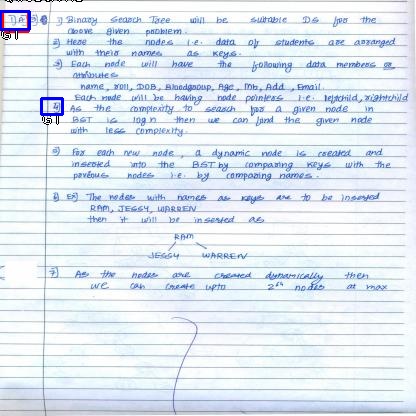 1) Binary Search Tree will be suitable DS for the
above given problem.
2) Here the nodes i.e. data of students are arranged
with their names as keys.
3) Each node will have the following data members or
attributes
name, roll, DOB, Bloodgroup, Age, Mb, Add, Email.
Each node will be having node pointers i.e. leftchild, rightchild
4) As the complexity to search for a given node in
BST is log n then we can find the given node
with less complexity.
5) For each new node, a dynamic node is created and
inserted into the BST by comparing keys with the
previous nodes i.e. by comparing names.
6) Ex) The nodes with names as keys are to be inserted
RAM, JESSY, WARREN
then it will be inserted as
RAM
JESSY WARREN
7) As the nodes are created dynamically then
we can create upto nodes at max